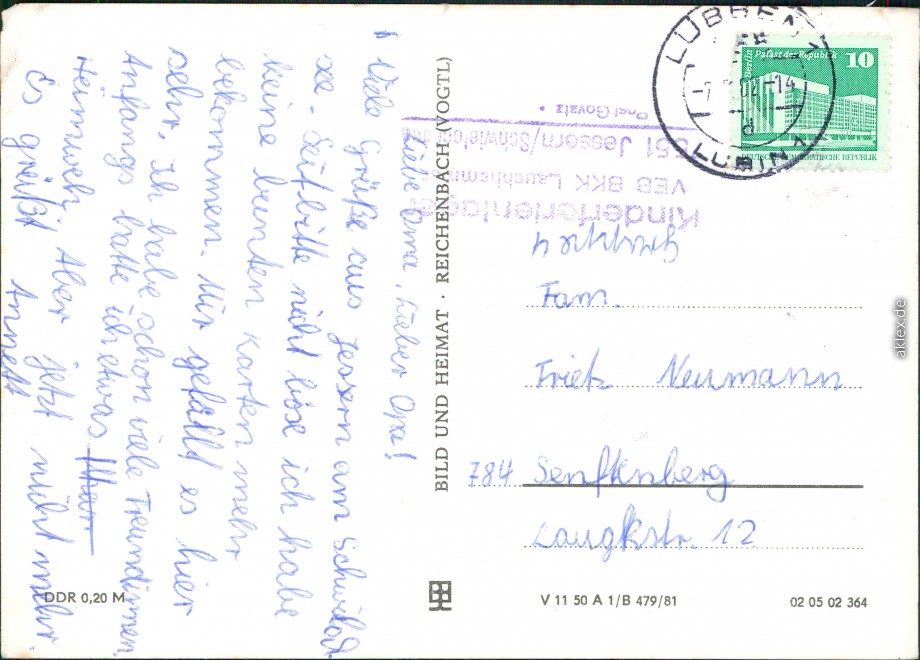 Liebe Oma, Lieber Opa!
Viele Grüße aus Jessern am Schwieloch
see. Seit bitte nicht böse ich habe
keine bunten Karten mehr
bekommen. Mir gefällt es hier
sehr. Ich habe schon viele Freundinnen.
Anfangs hatte ich etwas
Heimweh, Aber jetzt nicht mehr.
Es grüßt Annett
BILD UND HEIMAT · REICHENBACH (VOGTL)
Kinderferienlager
VEB BKK Lauchhammer
7551 Jessern/Schwielochsee
LÜBBEN 1
82-14
LUBIN 1
Berlin Palast der Republik 10
DEUTSCHE DEMOKRATISCHE REPUBLIK
Fam.
Fritz Neumann
784 Senftenberg
12
DDR 0,20 M
V 11 50 A 1/B 479/81
02 05 02 364
aklex.de